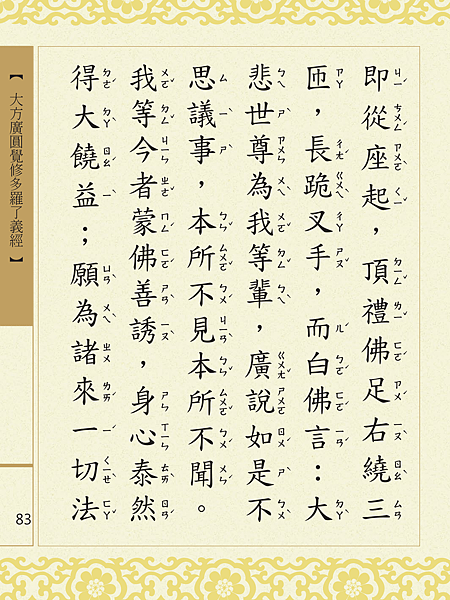 即從座起，頂禮佛足右繞三
匝，長跪叉手，而白佛言：大
悲世尊為我等輩，廣說如是不
思議事，本所不見本所不聞。
我等今者蒙佛善誘，身心泰然
得大饒益；願為諸來一切法
【大方廣圓覺修多羅了義經】
83